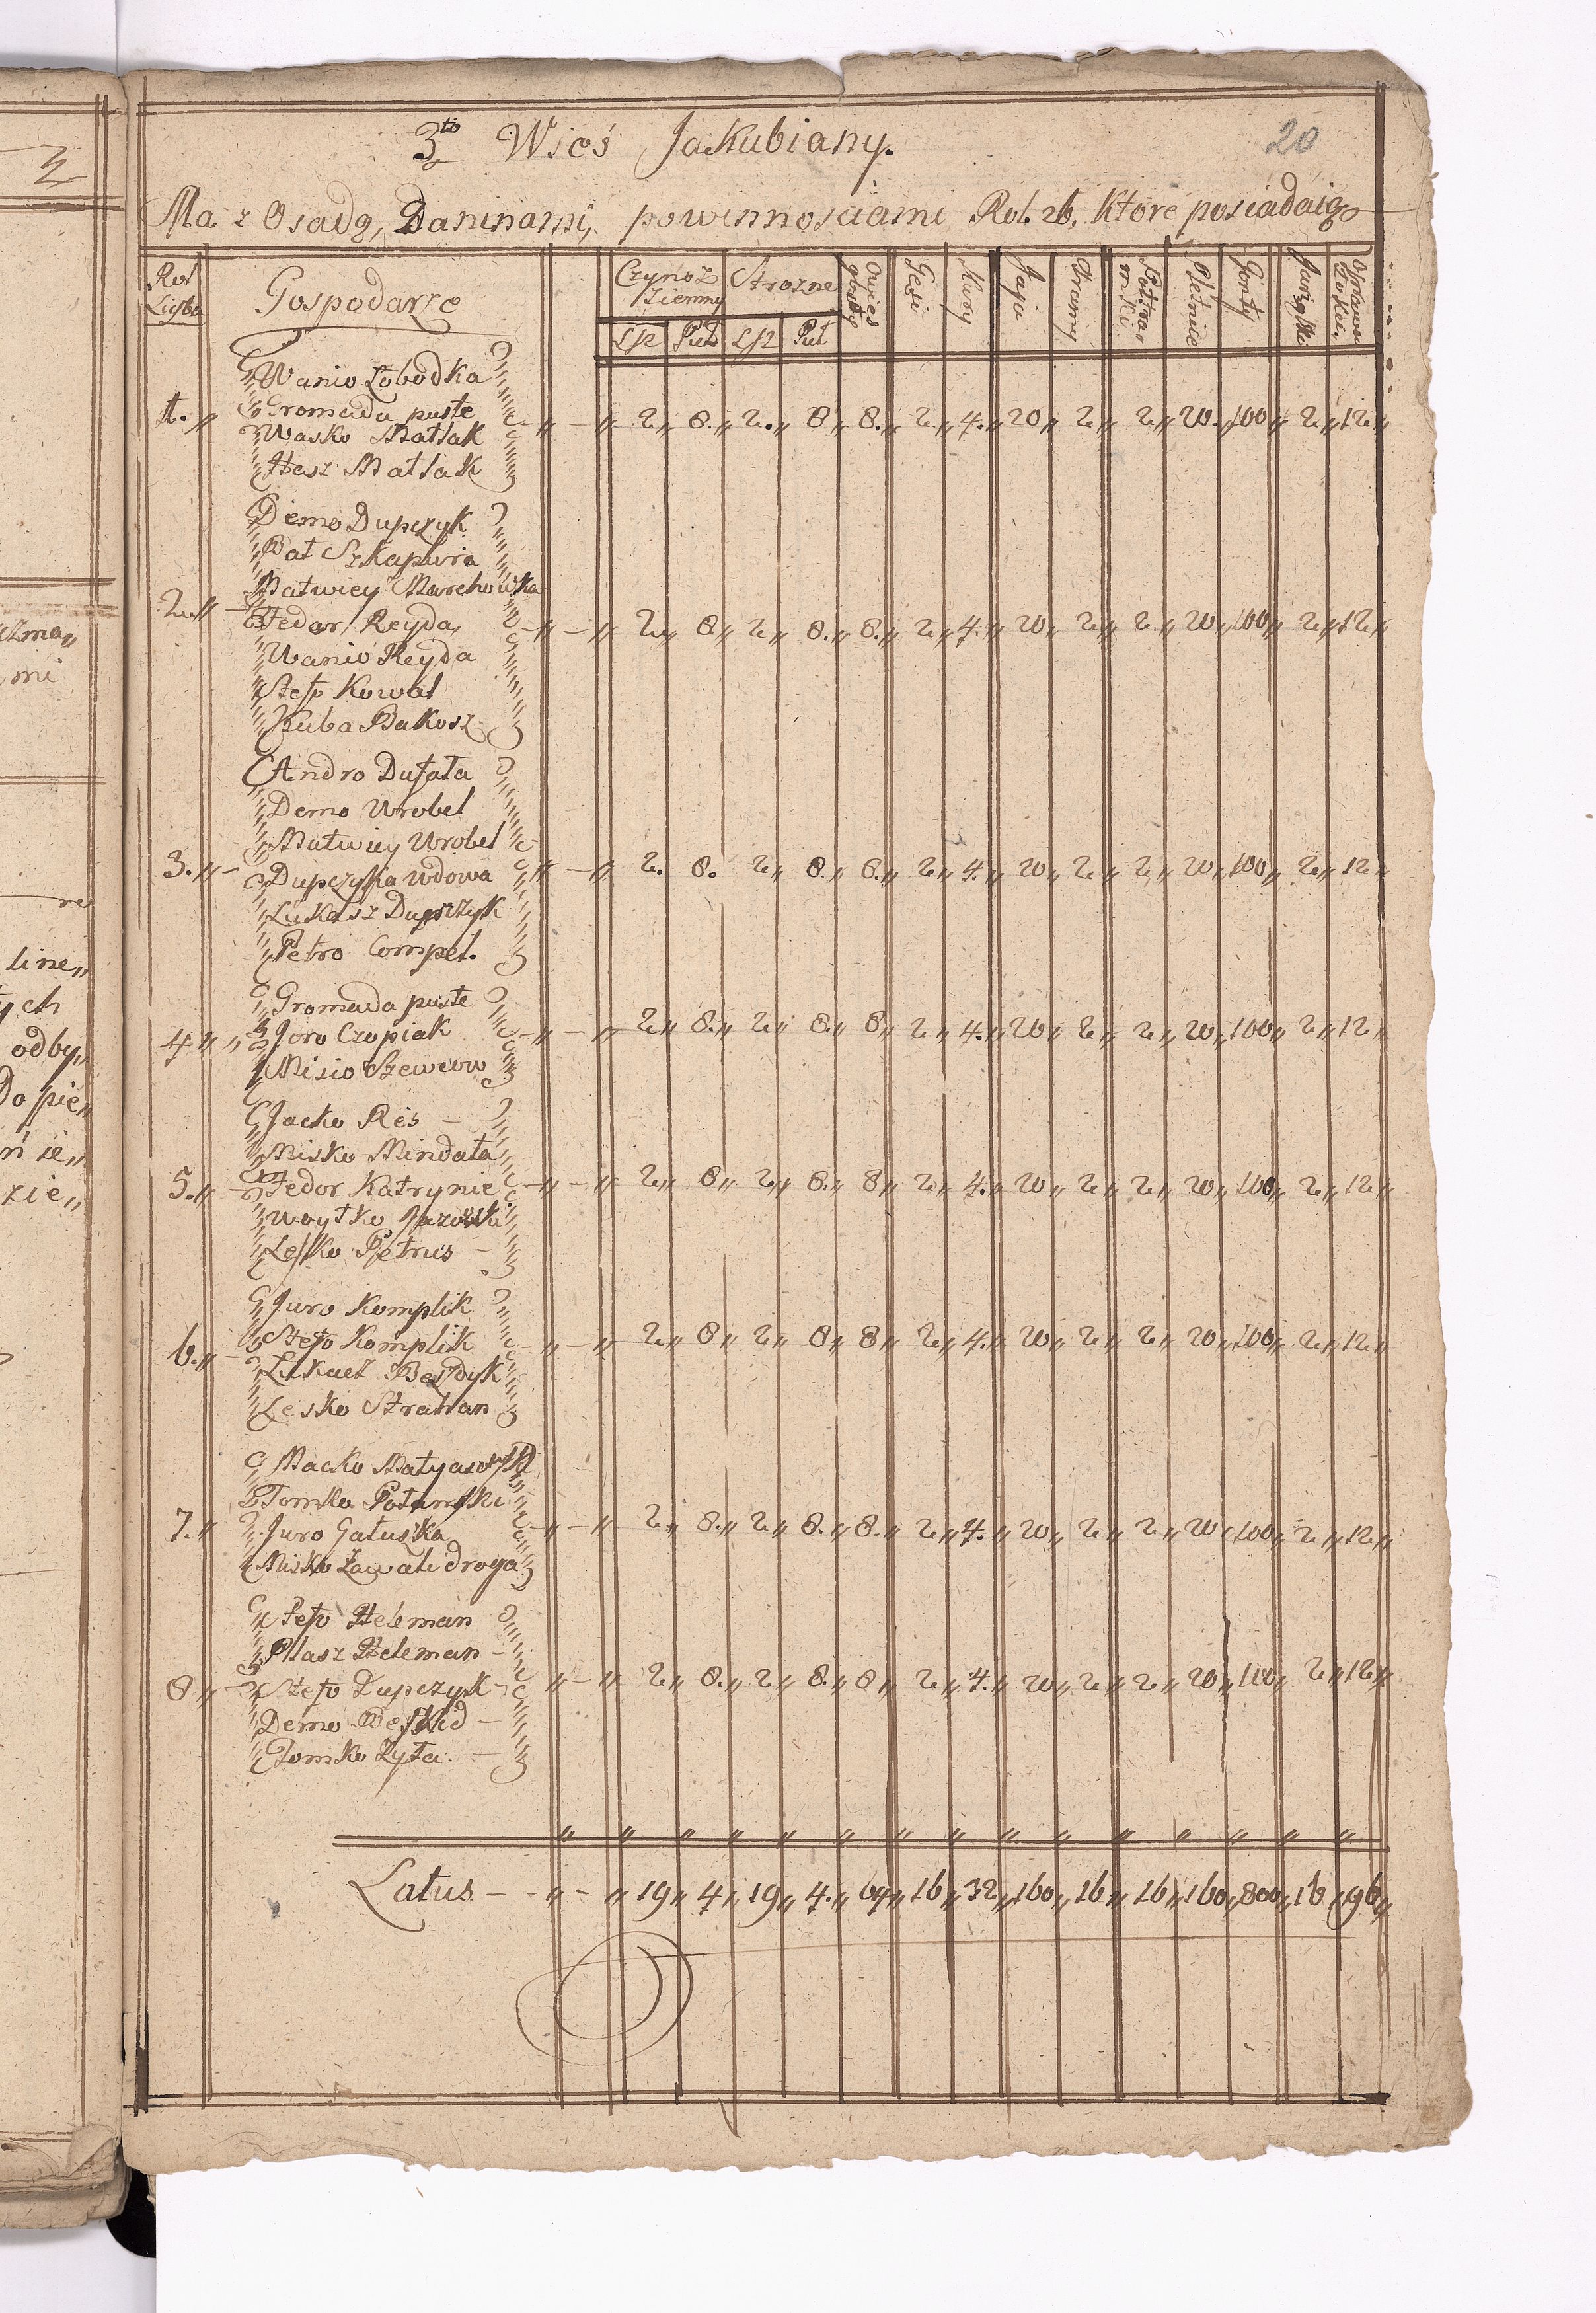 3tio Wieś Jakubiany.
20
Ma z Osadą, Daninami, powinnosciami Rol. 26. Ktore posiadaią
Rol Liczba Gospodarze Czynsz Ziemny Strozne Owies Gęsi Kury Jaja Pletnice Gonty
Pul Pul
Wanio Łobodka
1. Gromada puste 2 8 2 8 8 2 4 20 2 2 20 100 2 12
Wasko Matlak
Hesz Matlak
Demo Dupczyk
Bat Szkapura
Matwiey Marchowka
2. Fedor Reyda 2 8 2 8 8 2 4 20 2 2 20 100 2 12
Wanio Reyda
Stefo Kowal
Kuba Bakosz
Andro Dufata
Demo Wrobel
Matwiey Wrobel
3. Dupczyka wdowa 2 8 2 8 8 2 4 20 2 2 20 100 2 12
Lukasz Dupczyk
Petro Compel.
Gromada puste
4 Joro Czopiak 2 8 2 8 8 2 4 20 2 2 20 100 2 12
Misio Szewcow
Jacko Res
Misko Mindala
5. Fedor Katrynie 2 8 2 8 8 2 4 20 2 2 20 100 2 12
Woytko
Lesko Petrus
Juro Komplik
6. Stefo Komplik 2 8 2 8 8 2 4 20 2 2 20 100 2 12
Besdyk
Lesko Strahan
Macko
Tomko Potanski
7. Juro Gałuska 2 8 2 8 8 2 4 20 2 2 20 100 2 12
Misko Zawalidroga
Stefo Heleman
Ilasz Heleman
8 Stefo Dupczyk 2 8 2 8 8 2 4 20 2 2 20 100 2 12
Demo Beskid
Tomko Zyta.
Latus 19 4 19 4 64 16 32 160 16 16 160 800 16 96
line
ych
odby
Do pie
ń ie
zie